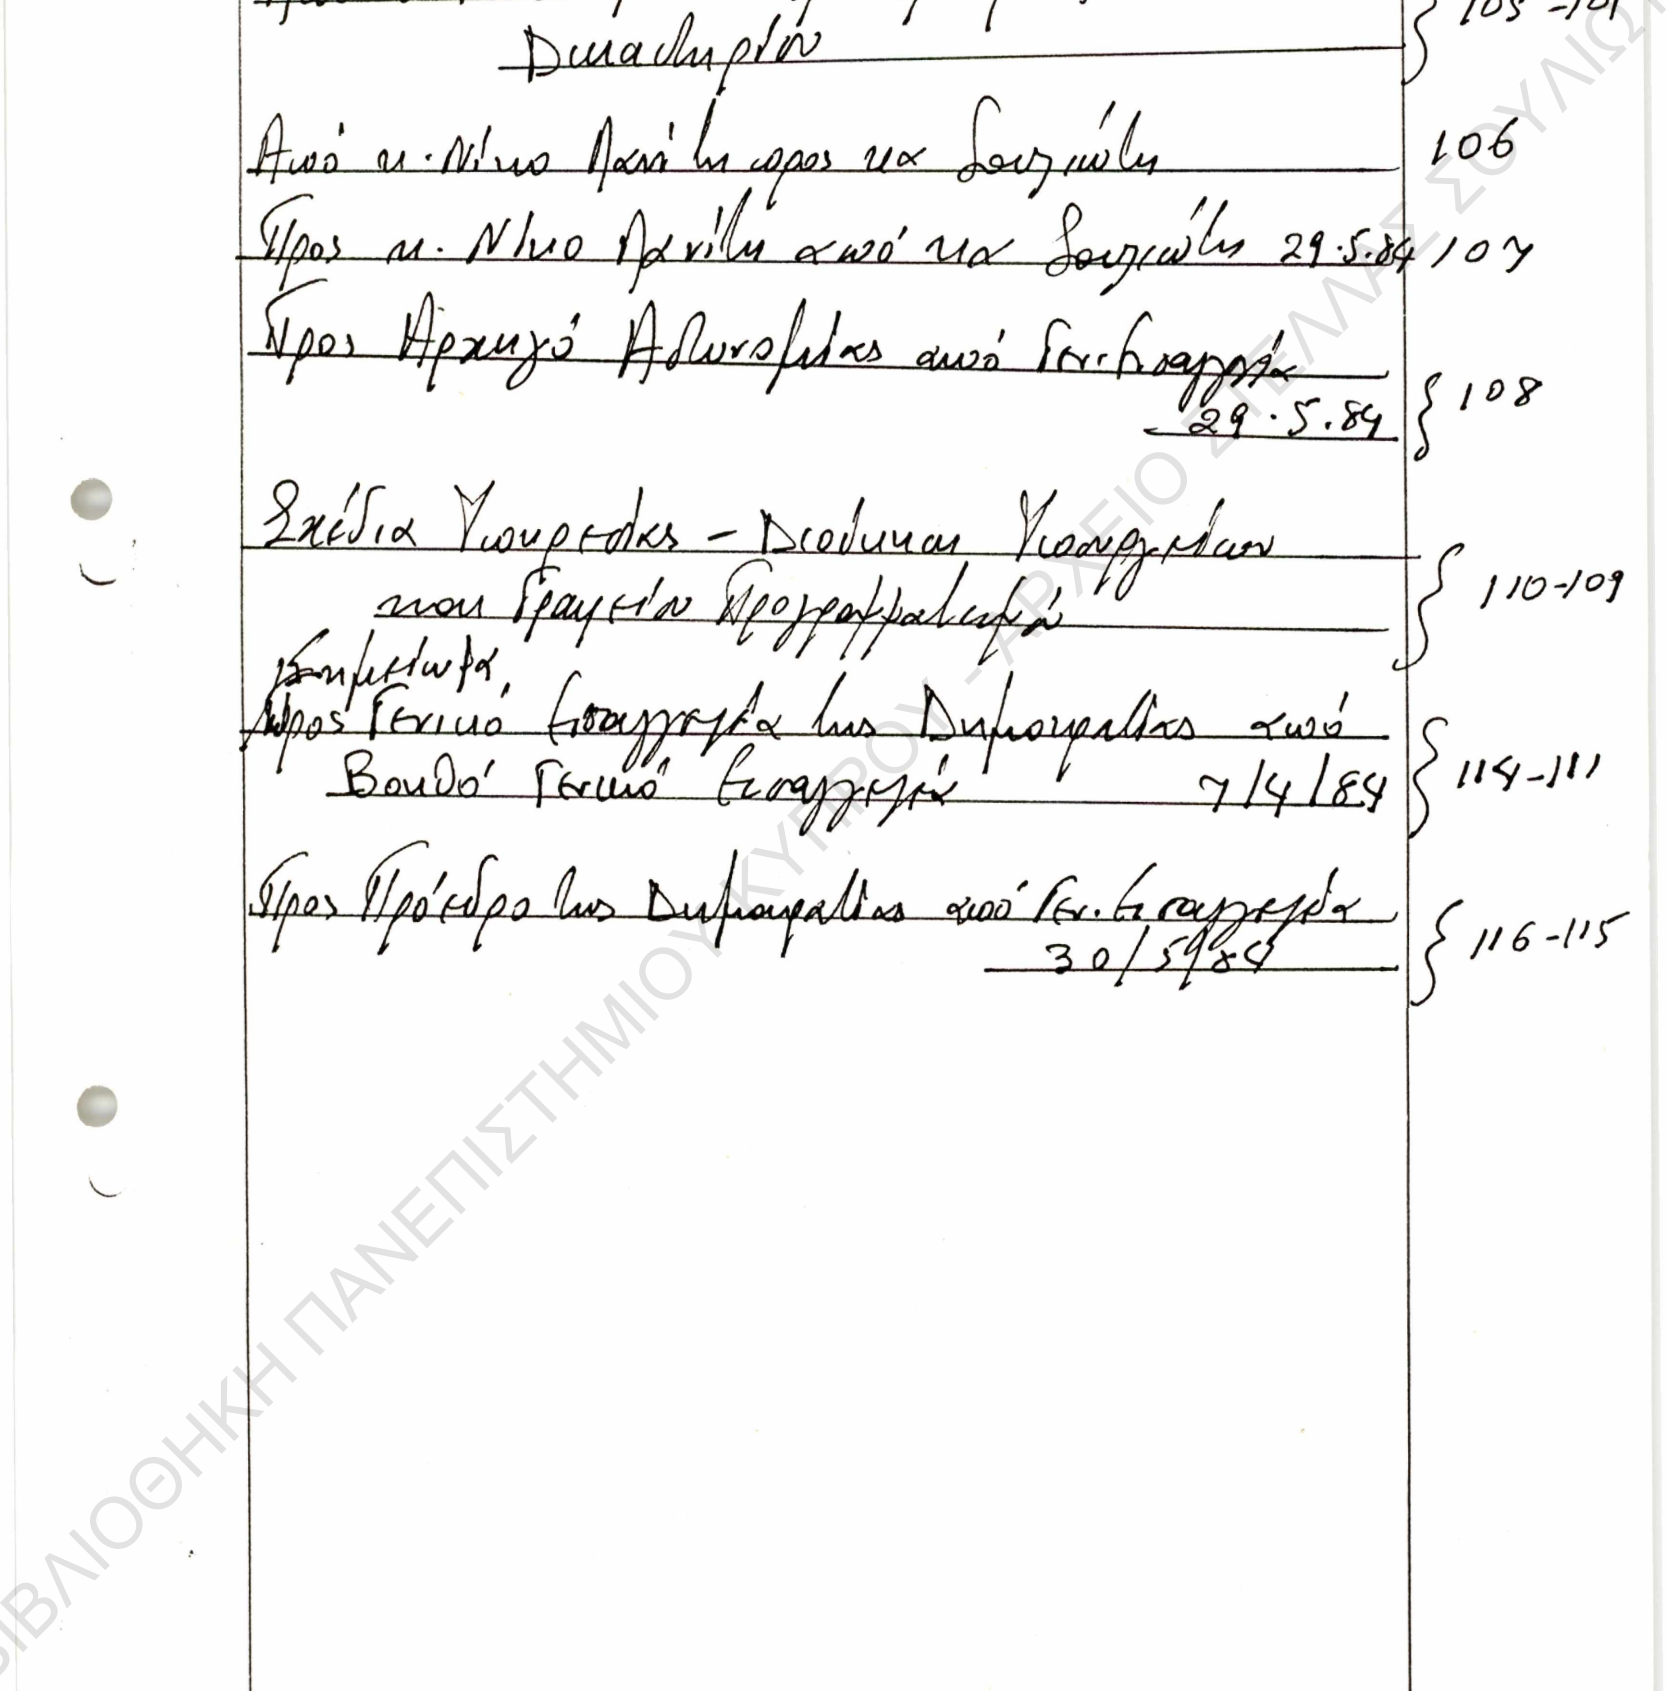 Δικαστηρίου 105-101
Από κ. Νίκο Λανίτη προς κα Σουλιώτη 106
Προς κ. Νίκο Λανίτη από κα Σουλιώτη 29.5.84 107
Προς Αρχηγό Αστυνομίας από Γεν. Εισαγγελέα
29.5.84 108
Σχέδια Υπηρεσίας - Διοίκηση Υπουργείων
και Γραφείου Προγραμματισμού 110-109
Σημείωμα
προς Γενικό Εισαγγελέα της Δημοκρατίας από
Βοηθό Γενικό Εισαγγελέα 7/4/84 114-111
Προς Πρόεδρο της Δημοκρατίας από Γεν. Εισαγγελέα
30/5/84 116-115
ΒΙΒΛΙΟΘΗΚΗ ΠΑΝΕΠΙΣΤΗΜΙΟΥ ΚΥΠΡΟΥ - ΑΡΧΕΙΟ ΣΤΕΛΛΑΣ ΣΟΥΛΙΩ